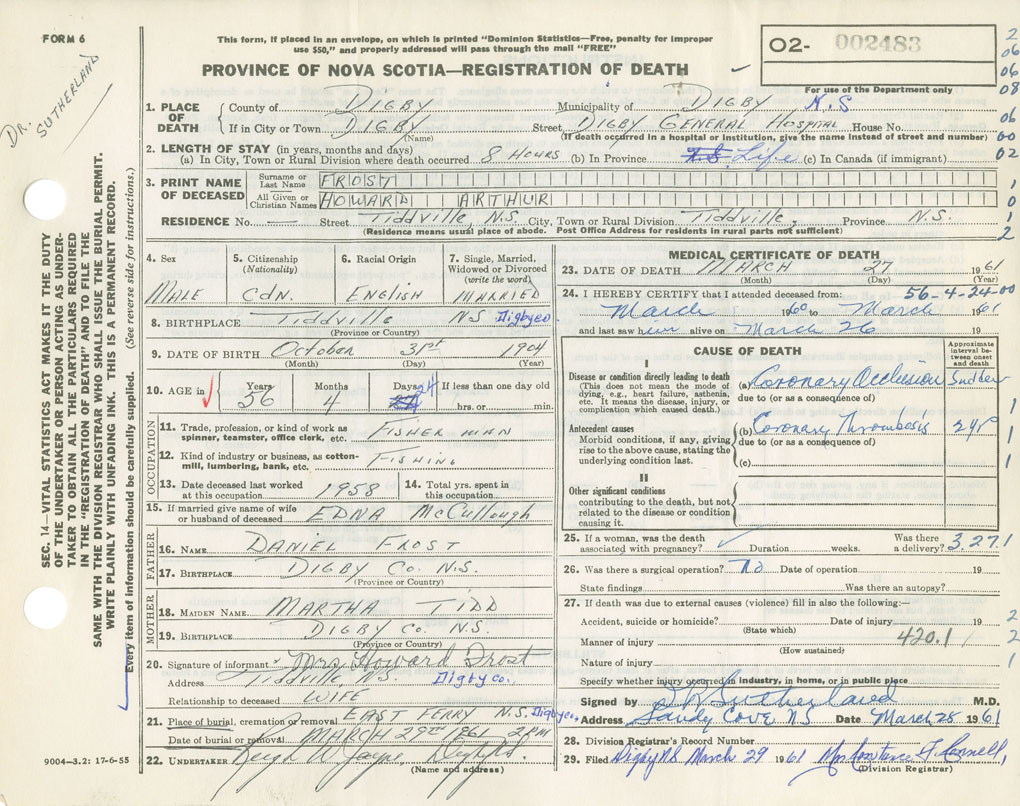 FORM 6
This form, if placed in an envelope, on which is printed "Dominion Statistics—Free, penalty for improper
use $50," and properly addressed will pass through the mail "FREE"
PROVINCE OF NOVA SCOTIA—REGISTRATION OF DEATH
O2- 002483
For use of the Department only
DR. SUTHERLAND
SEC. 14—VITAL STATISTICS ACT MAKES IT THE DUTY
OF THE UNDERTAKER OR PERSON ACTING AS UNDER-
TAKER TO OBTAIN ALL THE PARTICULARS REQUIRED
IN THE "REGISTRATION OF DEATH" AND TO FILE THE
SAME WITH THE DIVISION REGISTRAR WHO SHALL ISSUE THE BURIAL PERMIT.
WRITE PLAINLY WITH UNFADING INK. THIS IS A PERMANENT RECORD.
Every item of information should be carefully supplied. (See reverse side for instructions.)
1. PLACE OF DEATH
County of DIGBY Municipality of DIGBY N.S
If in City or Town DIGBY Street DIGBY GENERAL HOSPITAL House No.
(Name) (If death occurred in a hospital or institution, give the name instead of street and number)
2. LENGTH OF STAY (in years, months and days)
(a) In City, Town or Rural Division where death occurred 8 HOURS (b) In Province Life (c) In Canada (if immigrant)
3. PRINT NAME OF DECEASED
Surname or Last Name FROST
All Given or Christian Names HOWARD ARTHUR
RESIDENCE No. — Street Tiddville, N.S. City, Town or Rural Division Tiddville, Province N.S.
(Residence means usual place of abode. Post Office Address for residents in rural parts not sufficient)
4. Sex 5. Citizenship (Nationality) 6. Racial Origin 7. Single, Married, Widowed or Divorced (write the word)
MALE CDN. ENGLISH MARRIED
8. BIRTHPLACE Tiddville NS Digby co.
(Province or Country)
9. DATE OF BIRTH October 31st 1904
(Month) (Day) (Year)
10. AGE in Years 56 Months 4 Days 24 If less than one day old hrs. or min.
OCCUPATION
11. Trade, profession, or kind of work as spinner, teamster, office clerk, etc. FISHERMAN
12. Kind of industry or business, as cotton-mill, lumbering, bank, etc. FISHING
13. Date deceased last worked at this occupation 1958 14. Total yrs. spent in this occupation
15. If married give name of wife or husband of deceased EDNA McCullough
FATHER
16. NAME DANIEL FROST
17. BIRTHPLACE DIGBY Co. N.S.
(Province or Country)
MOTHER
18. MAIDEN NAME MARTHA TIDD
19. BIRTHPLACE DIGBY Co. N.S.
(Province or Country)
20. Signature of informant Mrs. Howard Frost
Address Tiddville, N.S. Digby co.
Relationship to deceased WIFE
21. Place of burial, cremation or removal EAST FERRY N.S. Digby co.
Date of burial or removal MARCH 29TH 1961 2 PM
22. UNDERTAKER
(Name and address)
9004—3.2: 17-6-55
MEDICAL CERTIFICATE OF DEATH
23. DATE OF DEATH MARCH 27 1961
(Month) (Day) (Year)
24. I HEREBY CERTIFY that I attended deceased from: 56-4-24-00
March 1960 to March 1961
and last saw him alive on March 26 19
CAUSE OF DEATH
Approximate interval between onset and death
I
Disease or condition directly leading to death
(This does not mean the mode of dying, e.g., heart failure, asthenia, etc. It means the disease, injury, or complication which caused death.)
(a) Coronary Occlusion Sudden
due to (or as a consequence of)
Antecedent causes
Morbid conditions, if any, giving rise to the above cause, stating the underlying condition last.
(b) Coronary Thrombosis
due to (or as a consequence of)
(c)
II
Other significant conditions
contributing to the death, but not related to the disease or condition causing it.
25. If a woman, was the death associated with pregnancy? Duration weeks. Was there a delivery? 3.27.1
26. Was there a surgical operation? No Date of operation 19
State findings Was there an autopsy?
27. If death was due to external causes (violence) fill in also the following:—
Accident, suicide or homicide? Date of injury 19
(State which)
Manner of injury 420.1
(How sustained)
Nature of injury
Specify whether injury occurred in industry, in home, or in public place
Signed by Sutherland M.D.
Address Sandy Cove NS Date March 28 1961
28. Division Registrar's Record Number
29. Filed Digby NS March 29 1961
(Division Registrar)